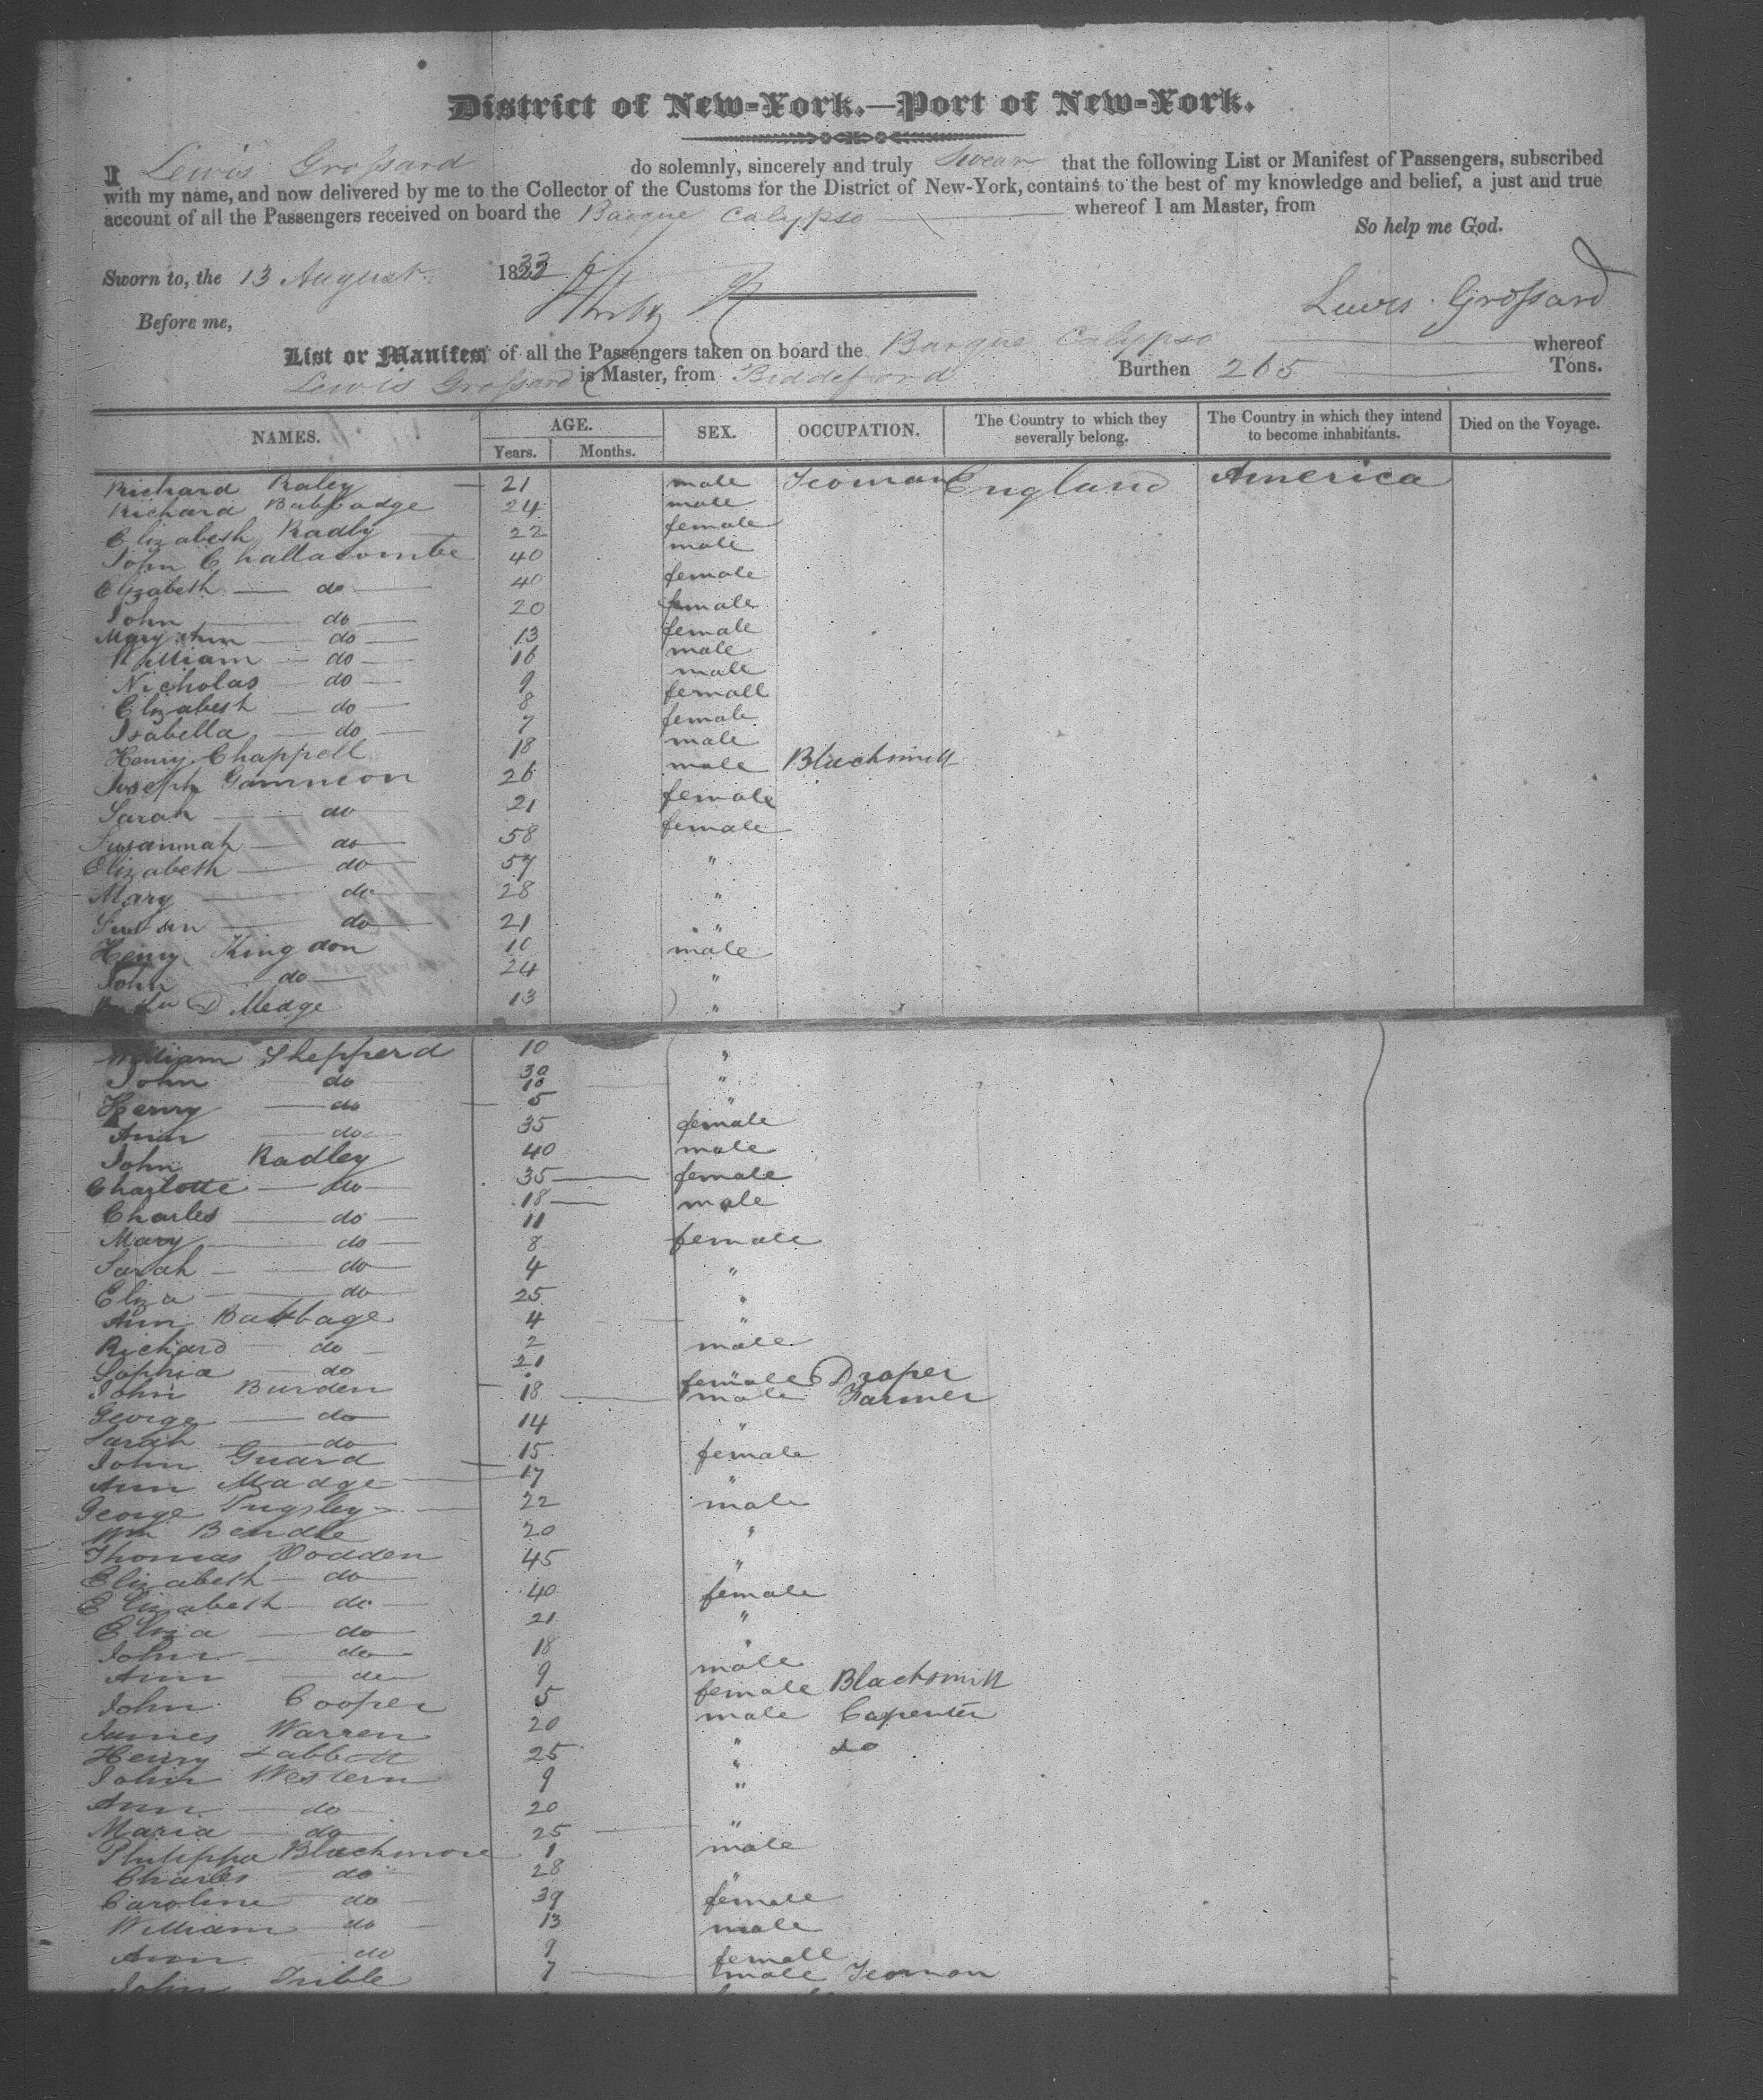 District of New-York.—Port of New-York.
I Lewis Grossard do solemnly, sincerely and truly Swear that the following List or Manifest of Passengers, subscribed
with my name, and now delivered by me to the Collector of the Customs for the District of New-York, contains to the best of my knowledge and belief, a just and true
account of all the Passengers received on board the Barque Calypso whereof I am Master, from
So help me God.
Sworn to, the 13 August 1833
Lewis Grossard
Before me,
List or Manifest of all the Passengers taken on board the Barque Calypso whereof
Lewis Grossard is Master, from Biddeford Burthen 265 Tons.
NAMES. AGE. Years. Months. SEX. OCCUPATION. The Country to which they severally belong. The Country in which they intend to become inhabitants. Died on the Voyage.
Richard Raley 21 male Yeoman England America
Richard 24 male
Elizabesh Radly 22 female
John Challacombe 40 male
Elizabeth do 40 female
John do 20 female
Mary Ann do 13 female
William do 16 male
Nicholas do 9 male
Elizabesh do 8 femall
Isabella do 7 female
Henry Chappell 18 male
Joseph Gammon 26 male Blacksmith
Sarah do 21 female
Susannah do 58 female
Elizabeth do 57 "
Mary do 28 "
Susan do 21 "
Henry Kingdon 10 male
John do 24 "
D Medge 13 "
William Shepperd 10 "
John do 30 10 "
Henry do 5 "
Ann do 35 female
John Radley 40 male
Charlotte do 35 female
Charles do 18 male
Mary do 11 female
Sarah do 8 "
Eliza do 4 "
Ann Babbage 25 "
Richard do 4 male
Sophia do 2 female Draper
John Burden 21 male Farmer
George do 18 "
Sarah do 14 female
John Guard 15 "
Ann Madge 17
George Pugsley 22 male
Wm Bendle 20 "
Thomas Vodden 45 "
Elizabeth do 40 female
Elizabesh do 21 "
Eliza do 18 "
John do 9 male
Ann do 5 female Blacksmith
John Cooper 20 male Carpenter
James Warren 25 " do
Henry Labbett 9 "
John Western 20 "
Ann do 25
Maria do 1 "
Philippa Blackmore 28 male
Charles do 39 "
Caroline do 13 female
William do 9 male
Ann do 7 femall
John Trible male Yeoman